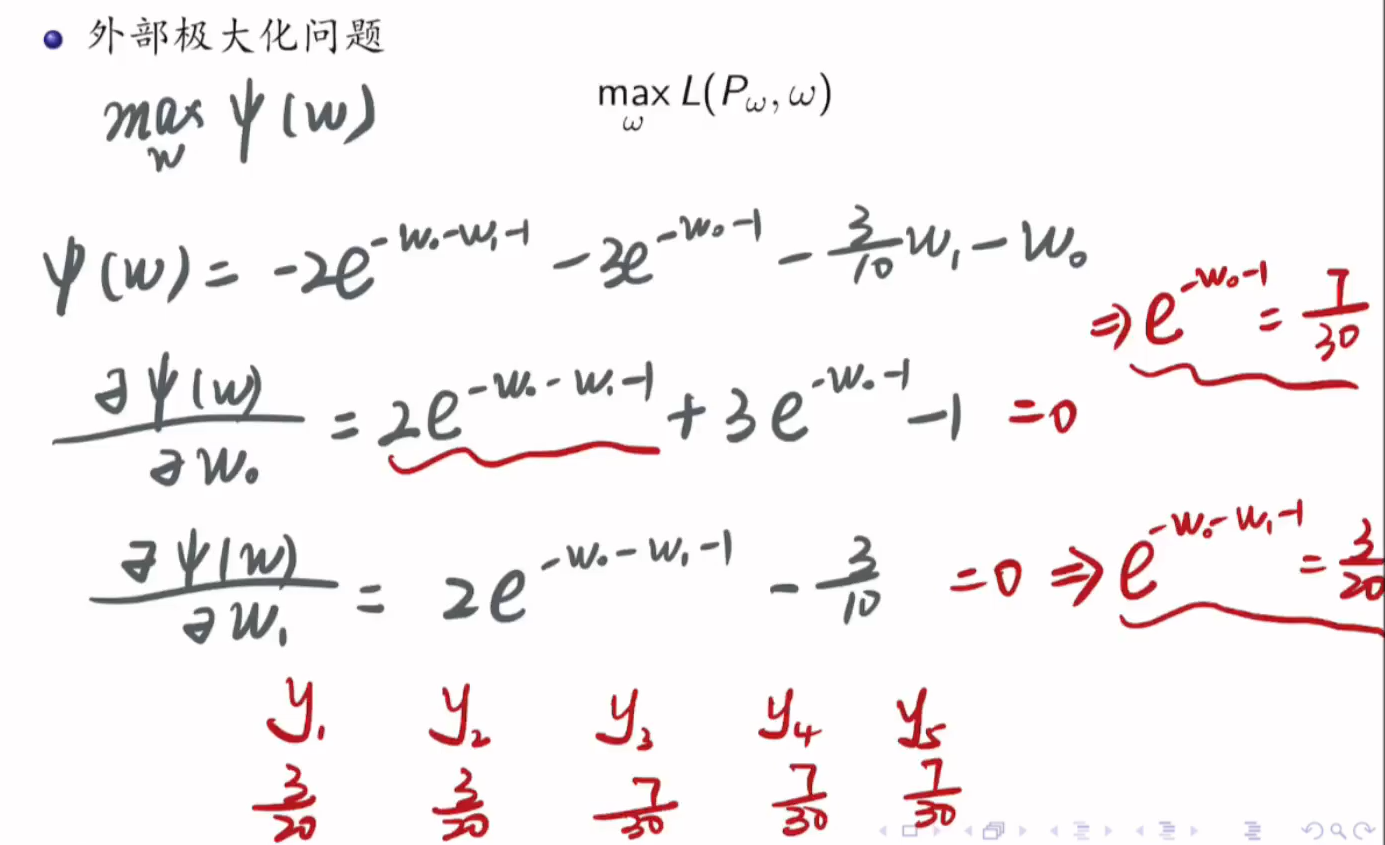 外部极大化问题
max_w ψ(w)
max_ω L(P_ω, ω)
ψ(w) = -2e^{-w₀-w₁-1} - 3e^{-w₀-1} - 3/10 w₁ - w₀
⇒ e^{-w₀-1} = 7/30
∂ψ(w)/∂w₀ = 2e^{-w₀-w₁-1} + 3e^{-w₀-1} - 1 = 0
∂ψ(w)/∂w₁ = 2e^{-w₀-w₁-1} - 3/10 = 0 ⇒ e^{-w₀-w₁-1} = 3/20
y₁ y₂ y₃ y₄ y₅
3/20 3/20 7/30 7/30 7/30